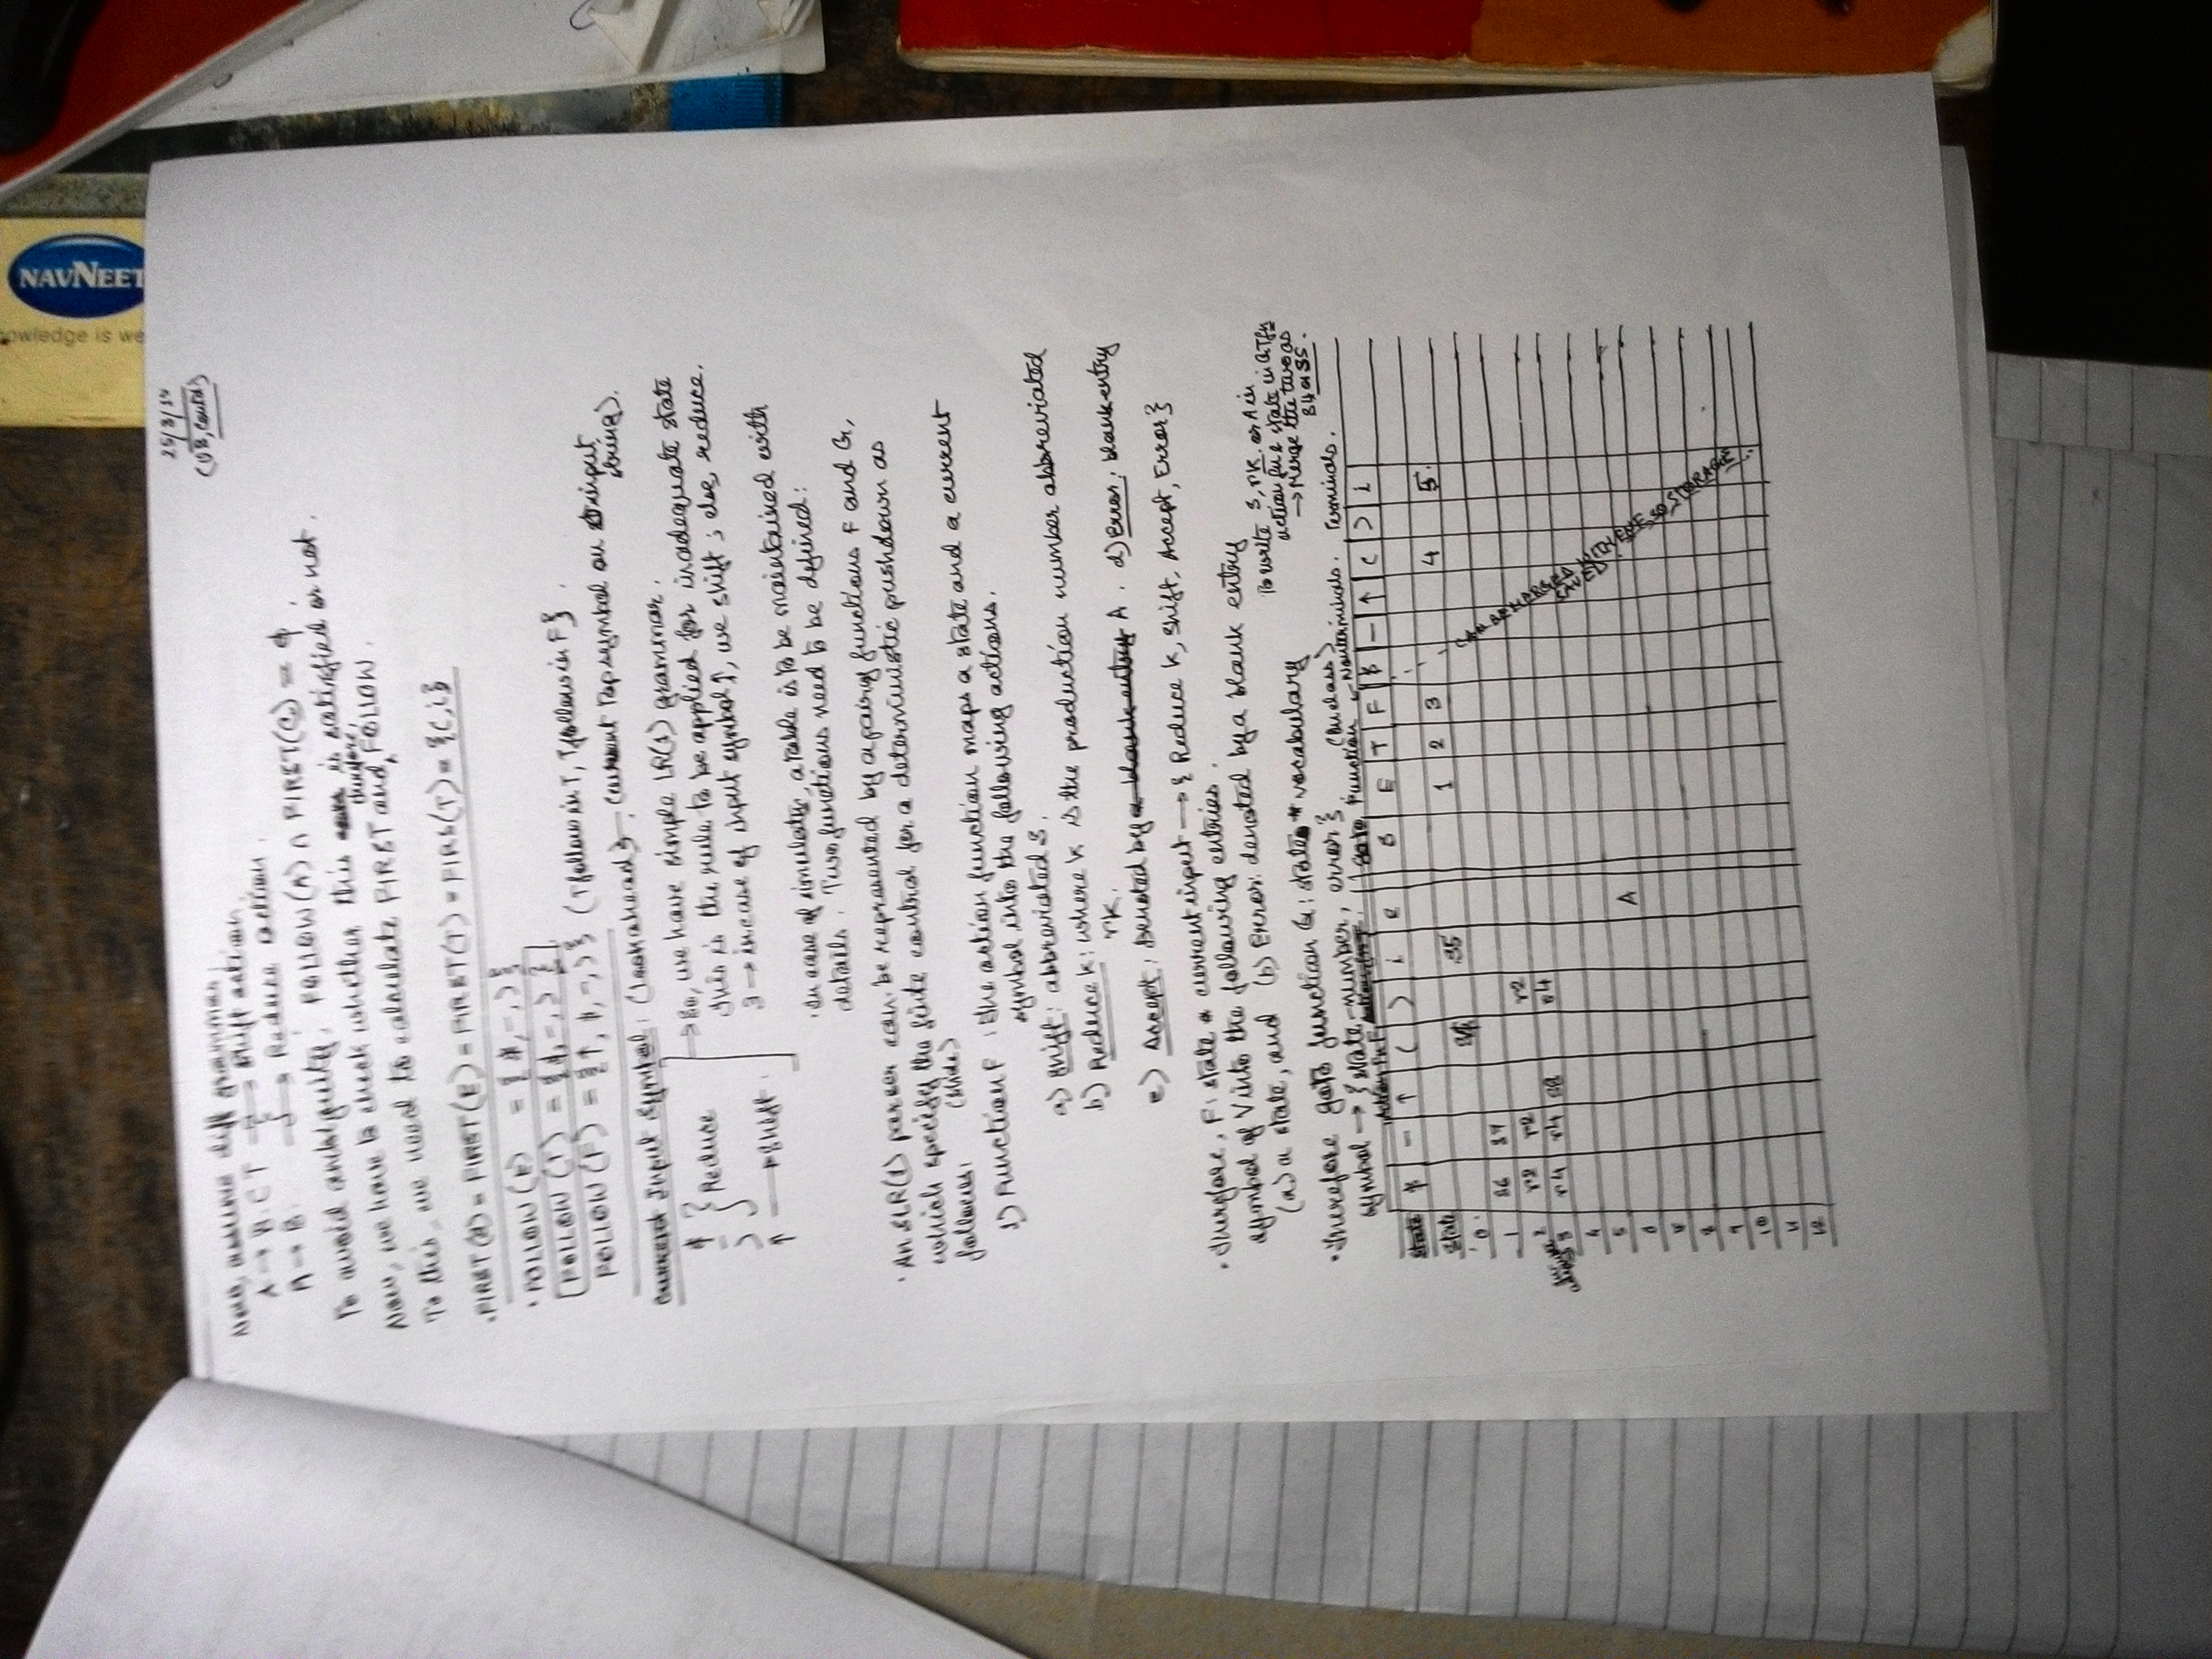 NAVNEET
owledge is we
25/3/15
(OB, Contd)
Now, assume diff grammar:
A → B.CT → Shift action.
A → B. → Reduce action.
To avoid ambiguity, FOLLOW(A) ∩ FIRST(C) = ϕ.
Now, we have to check whether this is satisfied or not.
To this, we need to calculate FIRST and, therefore, FOLLOW.
. FIRST(S) = FIRST(E) = FIRST(T) = FIRS(T) = {(, i}
. FOLLOW(E) = {$, -, )}
FOLLOW(T) = {$, -, )}
FOLLOW(F) = {↑, $, -, )} (T follow in T, T follows in F}.
Current Input Symbol: (Lookahead), (current Top symbol on input
string).
$ } Reduce
-
)
↑ → Shift.
→ So, we have simple LR(1) grammar.
This is the rule to be applied for inadequate state
3 → incase of input symbol ↑, we shift; else, reduce.
. In case of simulator, a table is to be maintained with
details. Two functions need to be defined:
. An SLR(1) parser can be represented by a pair of functions F and G,
which specify the finite control for a deterministic pushdown as
follows: (Slide)
1) Function F: The action function maps a state and a current
symbol into the following actions.
a) Shift: abbreviated S.
b) Reduce k: where k is the production number abbreviated
rk.
c) Accept: Denoted by a blank entry A. d) Error: blank entry
. Therefore, F: state * current input → {Reduce k, Shift, Accept, Error}
symbol of V into the following entries.
(a) a state, and (b) Error: denoted by a blank entry
. Therefore goto function G: state * vocabulary
symbol → {state-number, error}.
To write S, rk or A in
action fn & state in GT fn
→ Merge the two as
S4 or S5.
(In class)
Action Fn F Goto Function ← Nonterminals. Terminals.
State $ - ↑ ( ) i e S E T F $ - ↑ ( ) i
State
0 S4 S5 1 2 3 4 5
1 S6 S7
2 r2 r2 r2
3 r4 r4 S8 r4
4
5
6 A
7
8
9
10
11
12
CAN BE MERGED WITH ONE, SO, STORAGE
SAVED.